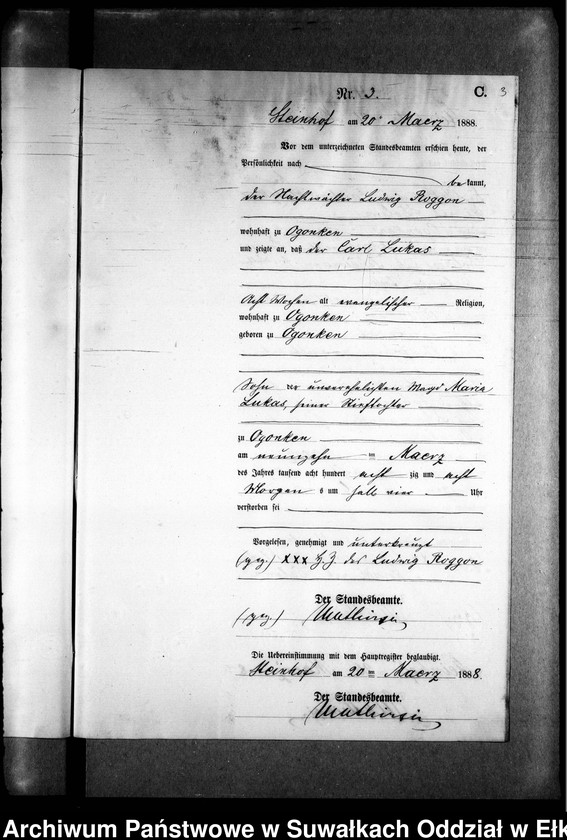 Nr. 3. C. 3
Steinhof am 20 ten Maerz 1888.
Vor dem unterzeichneten Standesbeamten erschien heute, der
Persönlichkeit nach
bekannt,
der Nachtwächter Ludwig Roggon
wohnhaft zu Ogonken
und zeigte an, daß der Carl Lukas
Acht Wochen alt evangelischer Religion,
wohnhaft zu Ogonken
geboren zu Ogonken
Sohn der unverehelichten Magd Maria
Lukas, seiner Stieftochter
zu Ogonken
am neunzehn ten Maerz
des Jahres tausend acht hundert acht zig und acht
Morgens um halb vier Uhr
verstorben sei
Vorgelesen, genehmigt und unterkreuzt
(gez.) XXX H. Z. des Ludwig Roggon
Der Standesbeamte.
(gez.)
Die Uebereinstimmung mit dem Hauptregister beglaubigt.
Steinhof am 20 ten Maerz 1888.
Der Standesbeamte.
Archiwum Państwowe w Suwałkach Oddział w Ełk